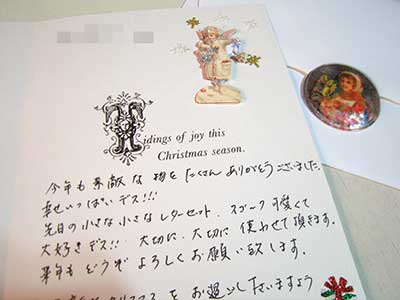 Tidings of joy this
Christmas season.
今年も素敵な物をたくさんありがとうございました.
幸せいっぱいデス!!!
先日の小さな小さなレターセット、スゴーク可愛くて
大好きデス!! 大切に、大切に使わせて頂きます。
来年もどうぞよろしくお願い致します。
クリスマスをお過ごし下さいますよう